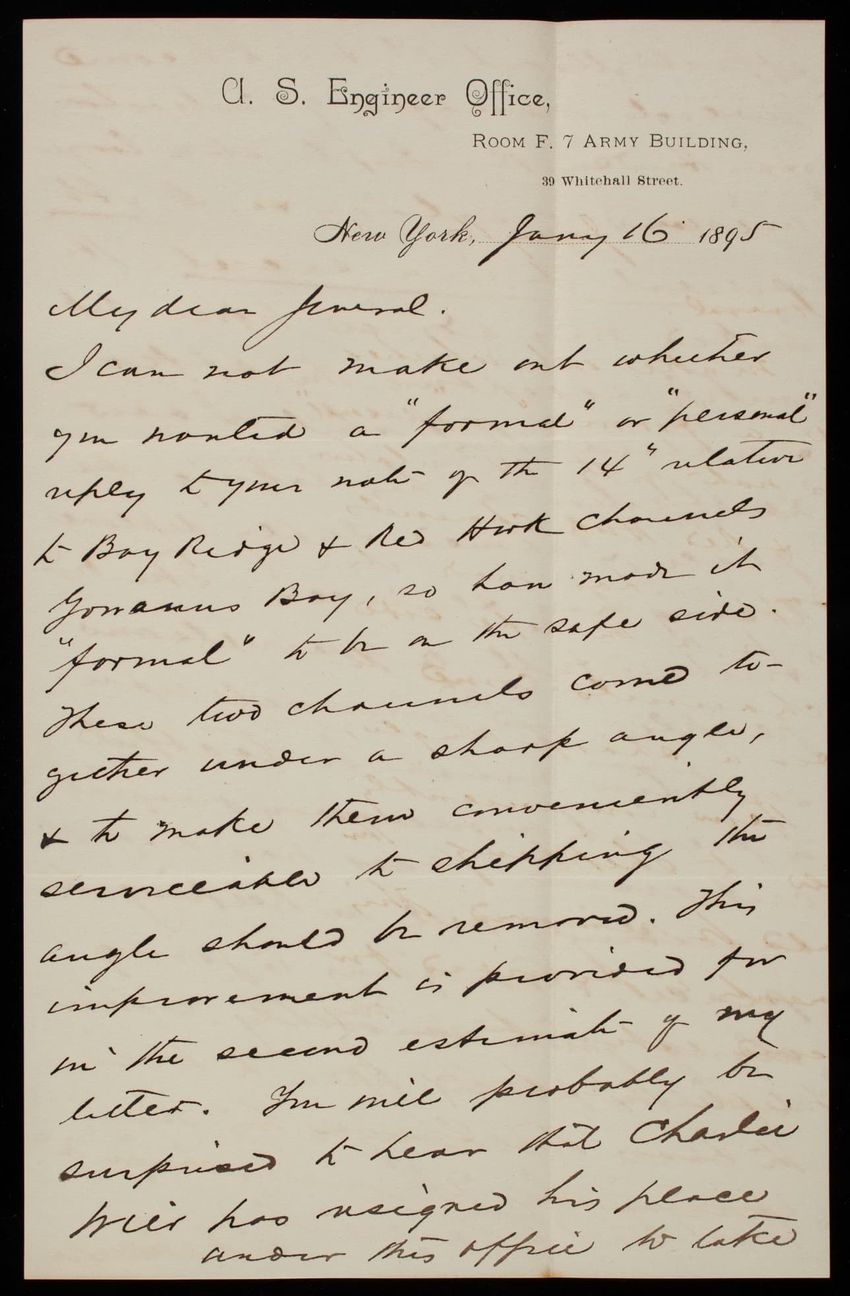 U. S. Engineer Office,
Room F. 7 Army Building,
39 Whitehall Street.
New York, Jany 16 1895
My dear General.
I can not make out whether
you wanted a "formal" or "personal"
reply to your note of the 14" relative
to Bay Ridge & Red Hook channels
Gowanus Bay, so have made it
"formal" to be on the safe side.
These two channels come to-
gether under a sharp angle,
& to make them conveniently
serviceable to shipping the
angle should be removed. This
improvement is provided for
in the second estimate of my
letter. You will probably be
surprised to hear that Charlie
has resigned his place
under this office to take